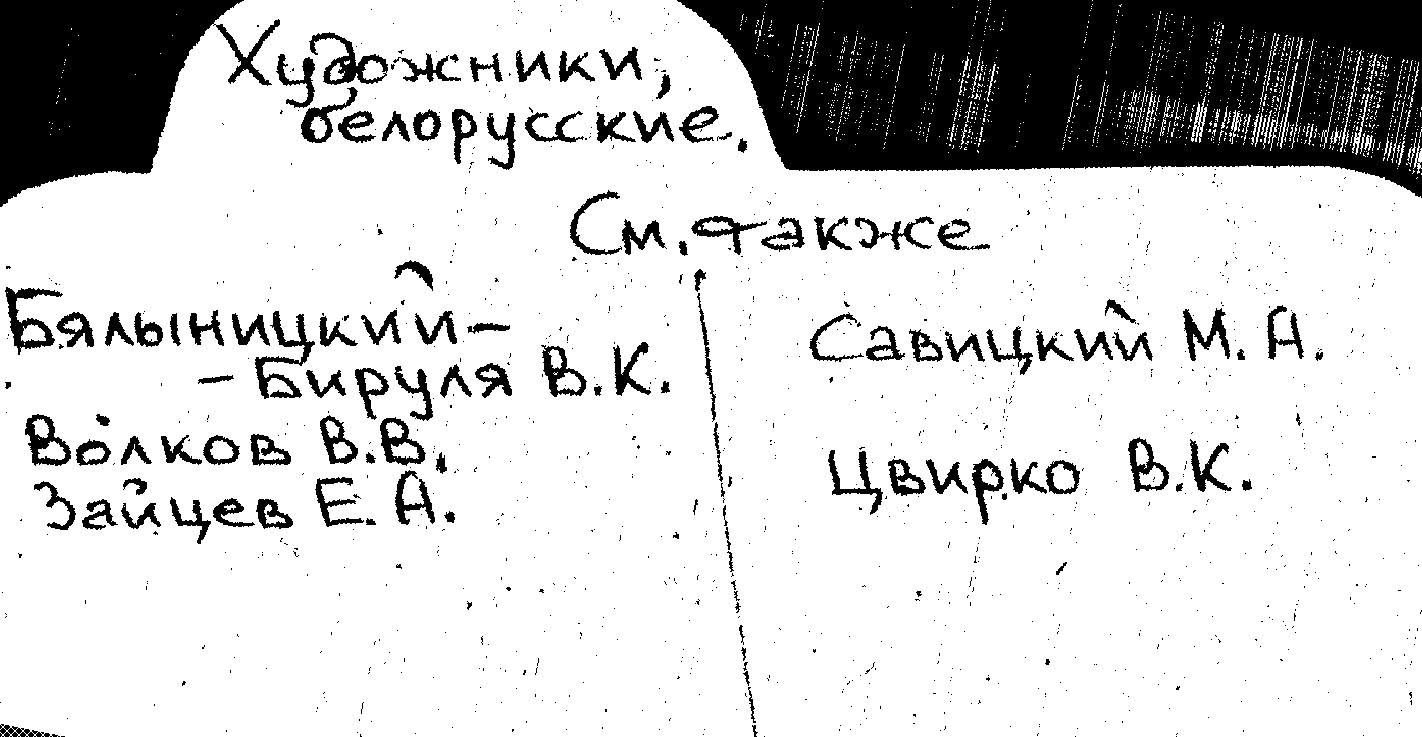 Художники,
белорусские.
См. также
Бялыницкий-
-Бируля В.К.
Волков В.В.
Зайцев Е.А.
Савицкий М.А.
Цвирко В.К.